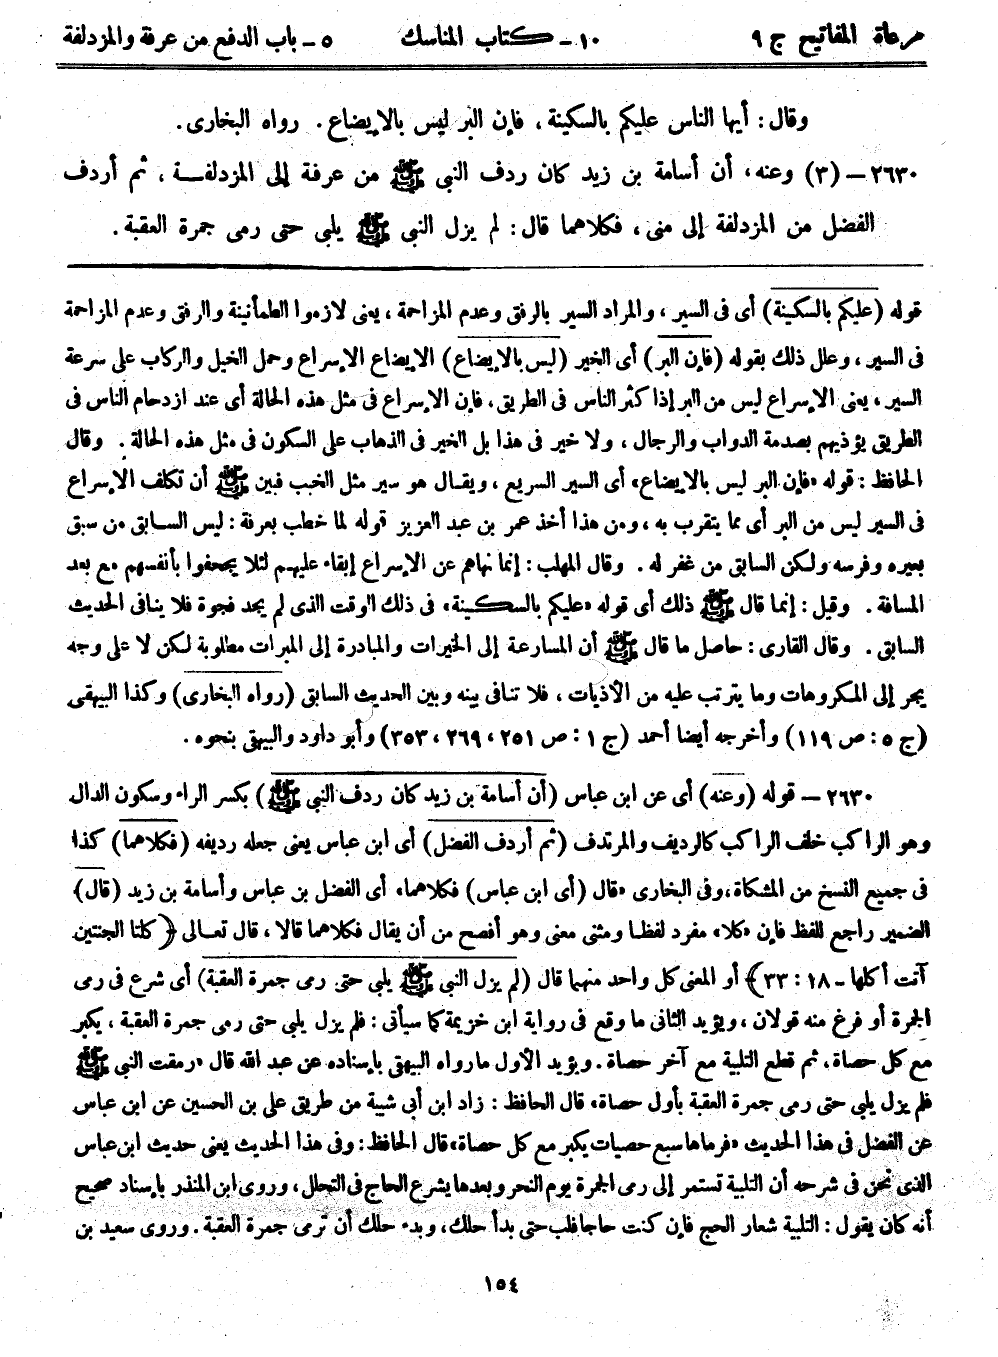 مرعاة المفاتيح ج ٩ ١٠ – كتاب المناسك ٥ – باب الدفع من عرفة والمزدلفة
وقال: أيها الناس عليكم بالسكينة، فإن البر ليس بالإيضاع. رواه البخارى.
٢٦٣٠ – (٣) وعنه، أن أسامة بن زيد كان ردف النبى ﷺ من عرفة إلى المزدلفة، ثم أردف
الفضل من المزدلفة إلى منى، فكلاهما قال: لم يزل النبى ﷺ يلبى حتى رمى جمرة العقبة.
قوله (عليكم بالسكينة) أى فى السير، والمراد السير بالرفق وعدم المزاحمة، يعنى لازموا الطمأنينة والرفق وعدم المزاحمة
فى السير، وعلل ذلك بقوله (فإن البر) أى الخير (ليس بالإيضاع) الإيضاع الإسراع وحمل الخيل والركاب على سرعة
السير، يعنى الإسراع ليس من البر إذا كثر الناس فى الطريق، فإن الإسراع فى مثل هذه الحالة أى عند ازدحام الناس فى
الطريق يؤذيهم بصدمة الدواب والرجال، ولا خير فى هذا بل الخير فى الذهاب على السكون فى مثل هذه الحالة. وقال
الحافظ: قوله «فإن البر ليس بالايضاع» أى السير السريع، ويقال هو سير مثل الخبب فبين ﷺ أن تكلف الإسراع
فى السير ليس من البر أى مما يتقرب به، ومن هذا أخذ عمر بن عبد العزيز قوله لما خطب بعرفة: ليس السابق من سبق
بعيره وفرسه ولكن السابق من غفر له. وقال المهلب: إنما نهاهم عن الإسراع إبقاء عليهم لئلا يجحفوا بأنفسهم مع بعد
المسافة. وقيل: إنما قال ﷺ ذلك أى قوله «عليكم بالسكينة» فى ذلك الوقت الذى لم يجد فجوة فلا ينافى الحديث
السابق. وقال القارى: حاصل ما قال ﷺ أن المسارعة إلى الخيرات والمبادرة إلى المبرات مطلوبة لكن لا على وجه
يجر إلى المكروهات وما يترتب عليه من الأذيات، فلا تنافى بينه وبين الحديث السابق (رواه البخارى) وكذا البيهقى
(ج ٥: ص ١١٩) وأخرجه أيضا أحمد (ج ١: ص ٢٥١، ٢٦٩، ٣٥٣) وأبو داود والبيهقى بنحوه.
٢٦٣٠ – قوله (وعنه) أى عن ابن عباس (أن أسامة بن زيد كان ردف النبى ﷺ) بكسر الراء وسكون الدال
وهو الراكب خلف الراكب كالرديف والمرتدف (ثم أردف الفضل) أى ابن عباس يعنى جعله رديفه (فكلاهما) كذا
فى جميع النسخ من المشكاة، وفى البخارى «قال (أى ابن عباس) فكلاهما» أى الفضل بن عباس وأسامة بن زيد (قال)
الضمير راجع للفظ فإن «كلا» مفرد لفظا ومثنى معنى وهو أفصح من أن يقال فكلاهما قالا، قال تعالى ﴿كلتا الجنتين
آتت أكلها – ١٨: ٣٣﴾ أو المعنى كل واحد منهما قال (لم يزل النبى ﷺ يلبى حتى رمى جمرة العقبة) أى شرع فى رمى
الجمرة أو فرغ منه قولان، ويؤيد الثانى ما وقع فى رواية ابن خزيمة كما سيأتى: فلم يزل يلبى حتى رمى جمرة العقبة، يكبر
مع كل حصاة، ثم قطع التلبية مع آخر حصاة. ويؤيد الأول ما رواه البيهقى بإسناده عن عبد الله قال «رمقت النبى ﷺ
فلم يزل يلبى حتى رمى جمرة العقبة بأول حصاة» قال الحافظ: زاد ابن أبى شيبة من طريق على بن الحسين عن ابن عباس
عن الفضل فى هذا الحديث «فرماها سبع حصيات يكبر مع كل حصاة» قال الحافظ: وفى هذا الحديث يعنى حديث ابن عباس
الذى نحن فى شرحه أن التلبية تستمر إلى رمى الجمرة يوم النحر وبعدها يشرع الحاج فى التحلل، وروى ابن المنذر بإسناد صحيح
أنه كان يقول: التلبية شعار الحج فإن كنت حاجا فلب حتى بدأ حلك، وبدء حلك أن ترمى جمرة العقبة. وروى سعيد بن
١٥٤